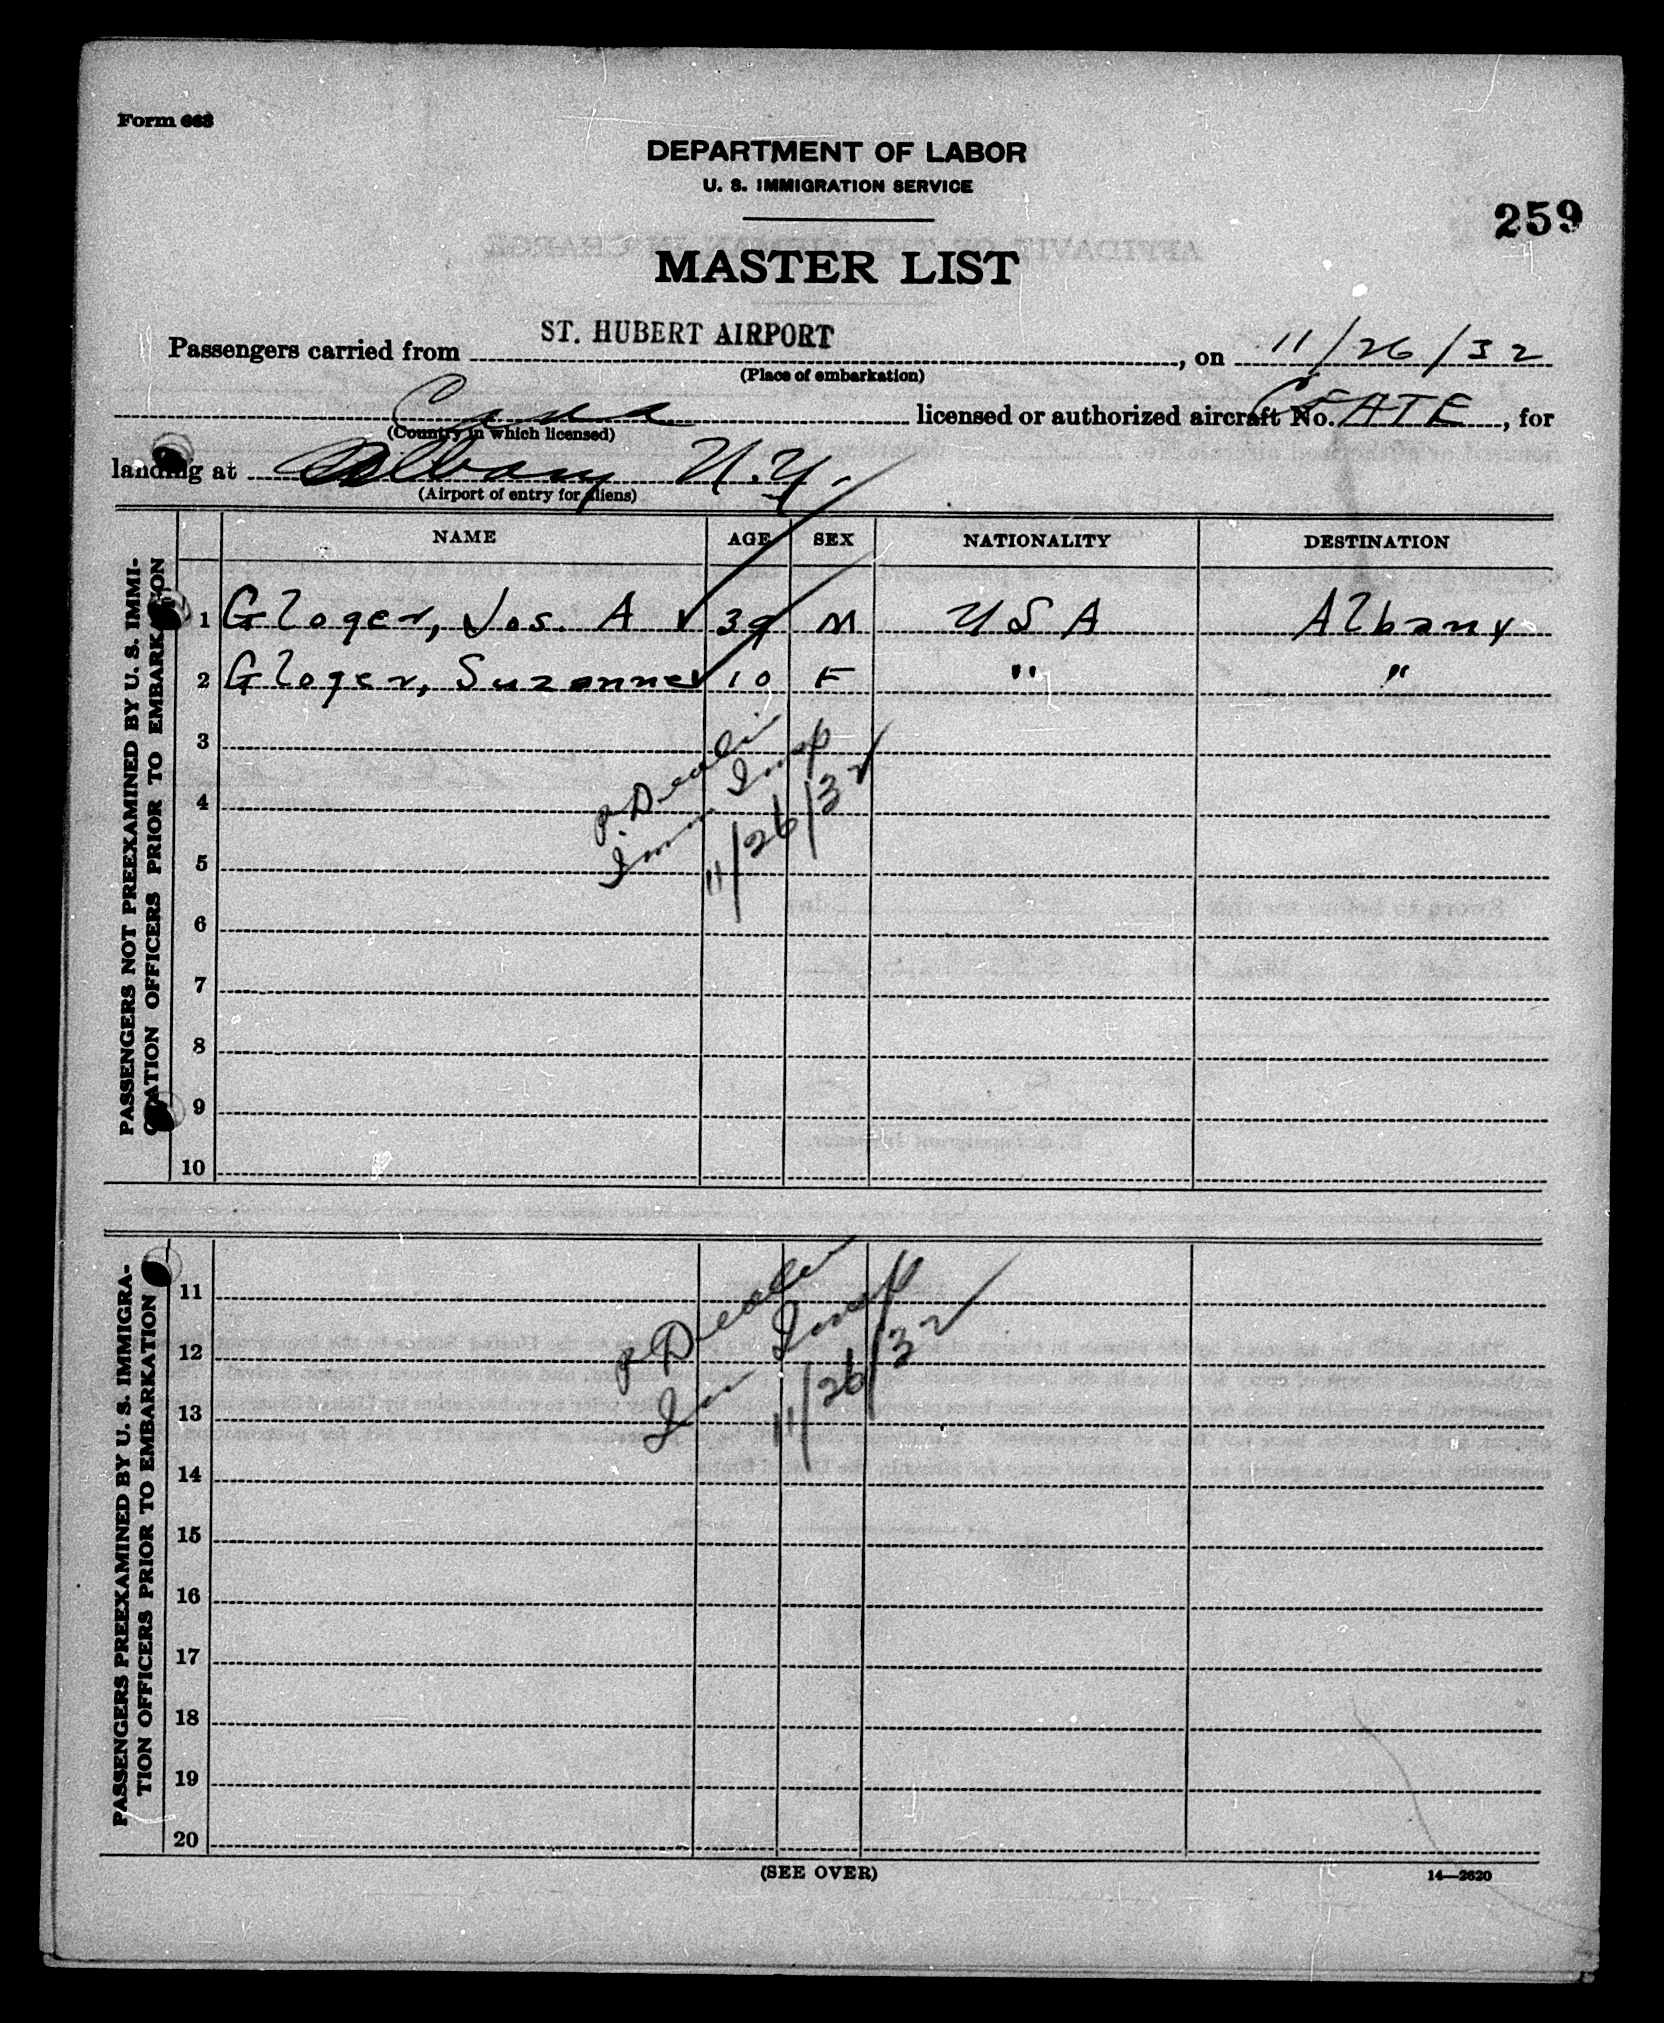 Form 663
DEPARTMENT OF LABOR
U. S. IMMIGRATION SERVICE
259
MASTER LIST
Passengers carried from ST. HUBERT AIRPORT, on 11/26/32
(Place of embarkation)
Canada licensed or authorized aircraft No. CFATE, for
(Country in which licensed)
landing at Albany N.Y.
(Airport of entry for aliens)
NAME AGE SEX NATIONALITY DESTINATION
PASSENGERS NOT PREEXAMINED BY U. S. IMMI-
GRATION OFFICERS PRIOR TO EMBARKATION
1 Gloger, Jos. A 39 M USA Albany
2 Gloger, Suzanne 10 F " "
3
4
5
6
7
8
9
10
Imm Insp
11/26/32
PASSENGERS PREEXAMINED BY U. S. IMMIGRA-
TION OFFICERS PRIOR TO EMBARKATION
11
12
13
14
15
16
17
18
19
20
Imm Insp
11/26/32
(SEE OVER)
14—2620